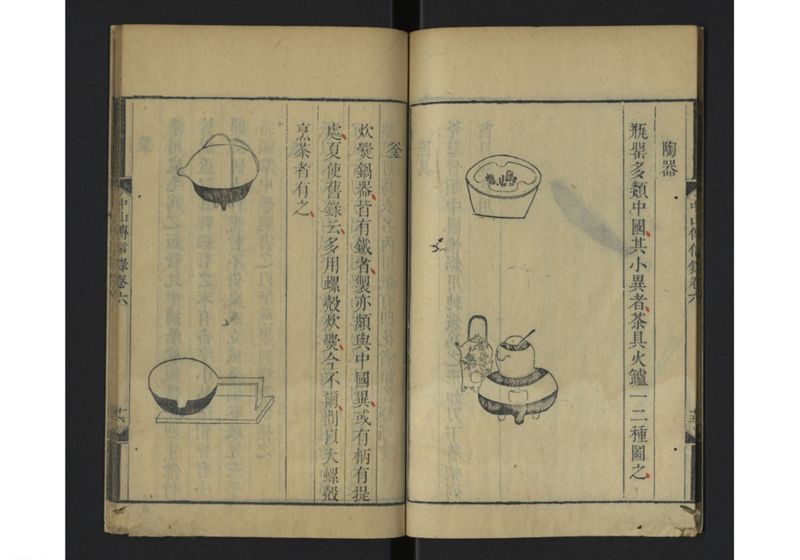 中山傳信錄卷六
十五
陶器
瓶罌多類中國其小異者茶具火鑪一二種圖之
釜
炊爨鍋器皆有鐵者製亦頗與中國異或有柄有提
處夏使舊錄云多用螺殼炊爨今不爾間以大螺殼
烹茶者有之
中山傳信錄卷六
十六